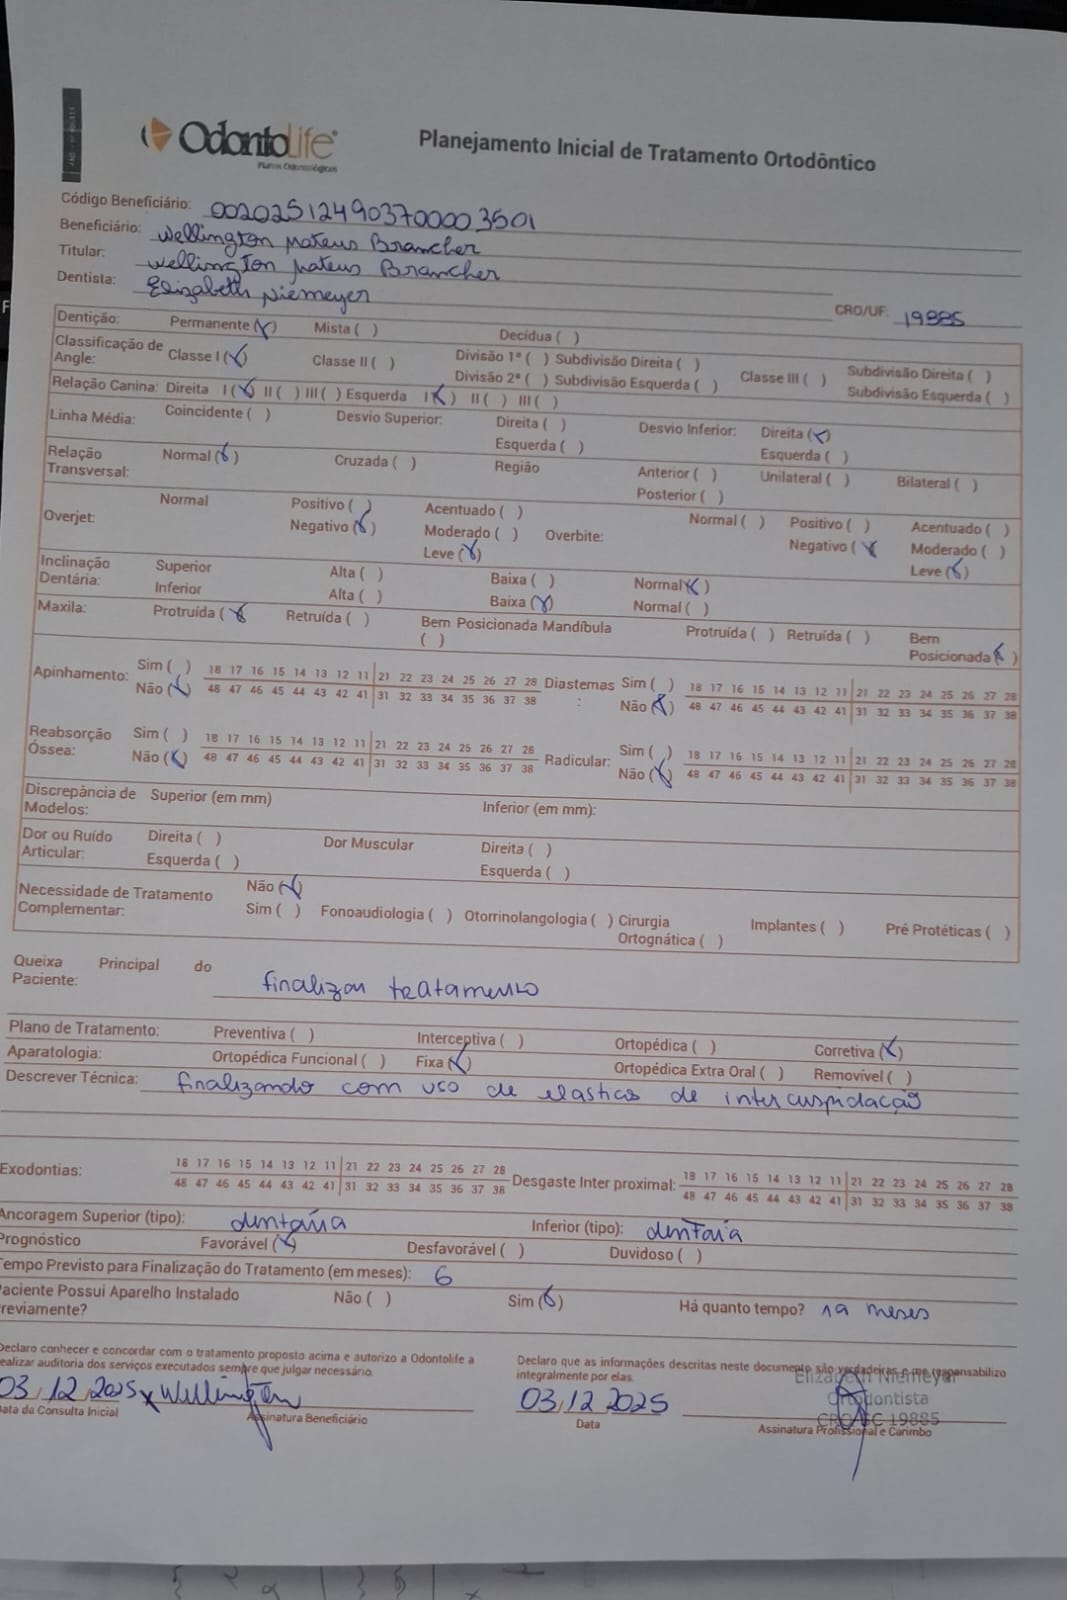 OdontoLife®
Planos Odontológicos
Planejamento Inicial de Tratamento Ortodôntico
Código Beneficiário: 00202512490370003501
Beneficiário: Wellington Mateus Brancher
Titular: Wellington Mateus Brancher
Dentista: Elizabeth Niemeyer CRO/UF: 19885
Dentição: Permanente (X) Mista ( ) Decídua ( )
Classificação de Angle: Classe I (X) Classe II ( ) Divisão 1ª ( ) Subdivisão Direita ( ) Divisão 2ª ( ) Subdivisão Esquerda ( ) Classe III ( ) Subdivisão Direita ( ) Subdivisão Esquerda ( )
Relação Canina: Direita I (X) II ( ) III ( ) Esquerda I (X) II ( ) III ( )
Linha Média: Coincidente ( ) Desvio Superior: Direita ( ) Esquerda ( ) Desvio Inferior: Direita (X) Esquerda ( )
Relação Transversal: Normal (X) Cruzada ( ) Região Anterior ( ) Posterior ( ) Unilateral ( ) Bilateral ( )
Overjet: Normal Positivo ( ) Negativo (X) Acentuado ( ) Moderado ( ) Leve (X) Overbite: Normal ( ) Positivo ( ) Negativo (X) Acentuado ( ) Moderado ( ) Leve (X)
Inclinação Dentária: Superior Alta ( ) Baixa ( ) Normal (X)
Inferior Alta ( ) Baixa (X) Normal ( )
Maxila: Protruída (X) Retruída ( ) Bem Posicionada ( ) Mandíbula Protruída ( ) Retruída ( ) Bem Posicionada (X)
Apinhamento: Sim ( ) 18 17 16 15 14 13 12 11 21 22 23 24 25 26 27 28 Diastemas: Sim ( ) 18 17 16 15 14 13 12 11 21 22 23 24 25 26 27 28
Não (X) 48 47 46 45 44 43 42 41 31 32 33 34 35 36 37 38 Não (X) 48 47 46 45 44 43 42 41 31 32 33 34 35 36 37 38
Reabsorção Óssea: Sim ( ) 18 17 16 15 14 13 12 11 21 22 23 24 25 26 27 28 Radicular: Sim ( ) 18 17 16 15 14 13 12 11 21 22 23 24 25 26 27 28
Não (X) 48 47 46 45 44 43 42 41 31 32 33 34 35 36 37 38 Não (X) 48 47 46 45 44 43 42 41 31 32 33 34 35 36 37 38
Discrepância de Modelos: Superior (em mm) Inferior (em mm):
Dor ou Ruído Articular: Direita ( ) Esquerda ( ) Dor Muscular Direita ( ) Esquerda ( )
Necessidade de Tratamento Complementar: Não (X)
Sim ( ) Fonoaudiologia ( ) Otorrinolangologia ( ) Cirurgia Ortognática ( ) Implantes ( ) Pré Protéticas ( )
Queixa Principal do Paciente: finalizar tratamento
Plano de Tratamento: Preventiva ( ) Interceptiva ( ) Ortopédica ( ) Corretiva (X)
Aparatologia: Ortopédica Funcional ( ) Fixa (X) Ortopédica Extra Oral ( ) Removível ( )
Descrever Técnica: finalizando com uso de elasticos de intercuspidação
Exodontias: 18 17 16 15 14 13 12 11 21 22 23 24 25 26 27 28 Desgaste Inter proximal: 18 17 16 15 14 13 12 11 21 22 23 24 25 26 27 28
48 47 46 45 44 43 42 41 31 32 33 34 35 36 37 38 48 47 46 45 44 43 42 41 31 32 33 34 35 36 37 38
Ancoragem Superior (tipo): dentaria Inferior (tipo): dentaria
Prognóstico Favorável (X) Desfavorável ( ) Duvidoso ( )
Tempo Previsto para Finalização do Tratamento (em meses): 6
Paciente Possui Aparelho Instalado Previamente? Não ( ) Sim (X) Há quanto tempo? 19 meses
Declaro conhecer e concordar com o tratamento proposto acima e autorizo a Odontolife a realizar auditoria dos serviços executados sempre que julgar necessário.
03/12/2025 x Wellington
Data da Consulta Inicial Assinatura Beneficiário
Declaro que as informações descritas neste documento são verdadeiras e me responsabilizo integralmente por elas.
Elizabeth Niemeyer
Ortodontista
CRO/SC 19885
03/12 2025
Data Assinatura Profissional e Carimbo